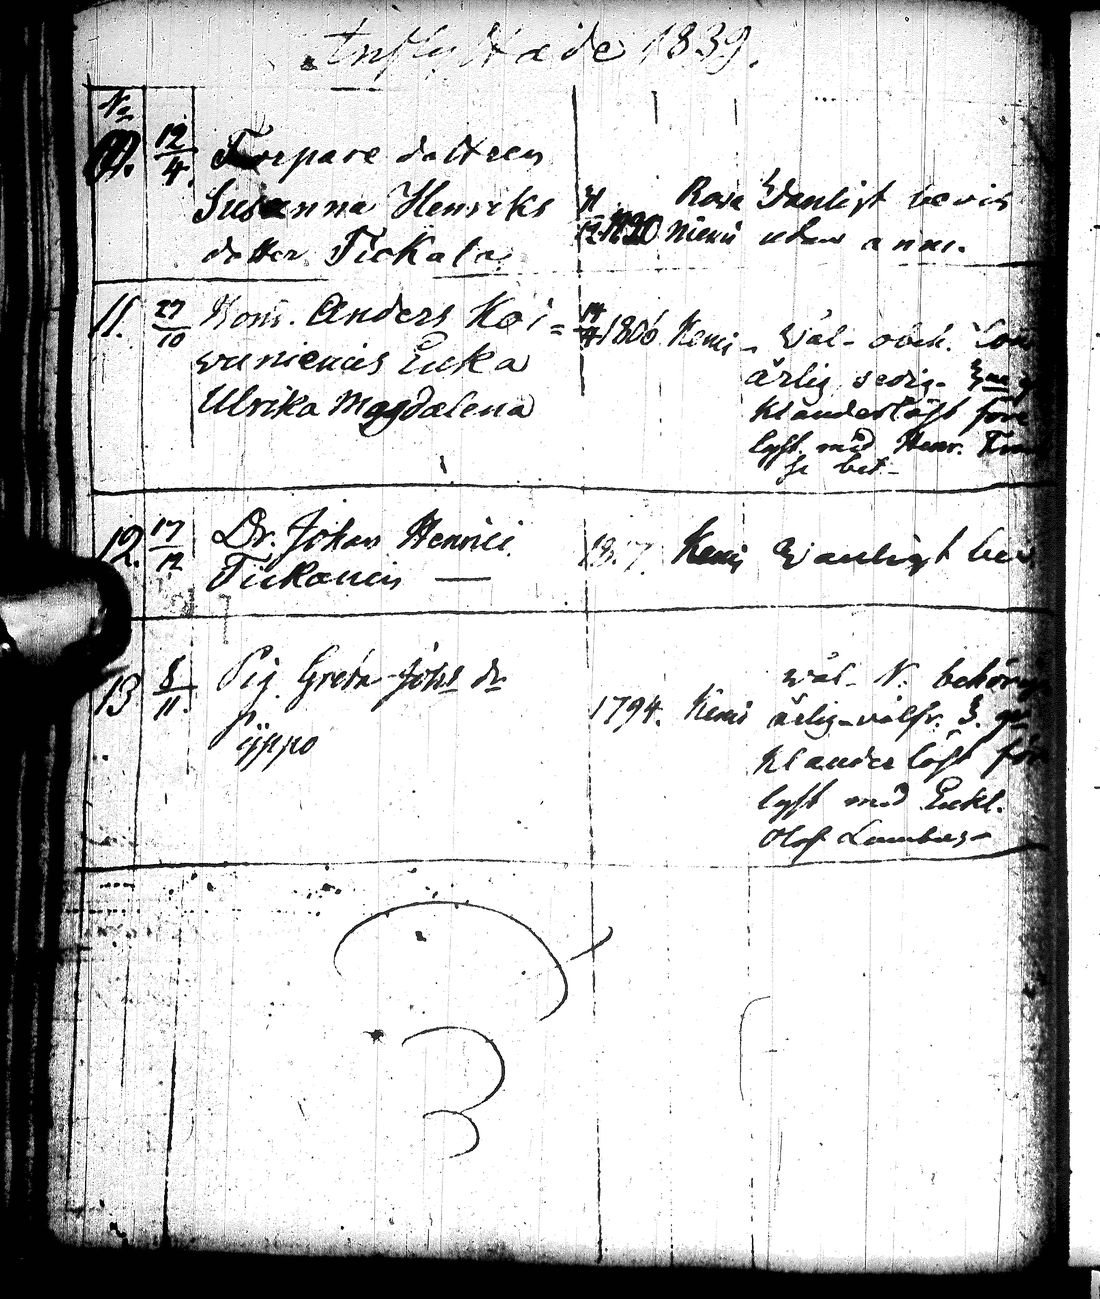 Inflyttade 1839.
No
10. 12/4. Torpare dottren
Susanna Henriks
dotter Tickala
1820 Rova niemi
Wanligt bevis
utan anm.
11. 27/10 Anders Koi=
vuniemis Enka
Ulrika Magdalena
1806. Kemi
Wäl-
ärlig sedig-
klanderlöst före
lyst. med Henr.
bet-
12. 17/12 Dr. Johan Henrici
Tickanen —
Kemi Wanligt bev
13 8/11. Pig. Greta Johs dr
Yppo
1794. Kemi
wäl- N. behörig
ärlig-välfr.
klanderlöst för
lyst med Enkl.
Olof